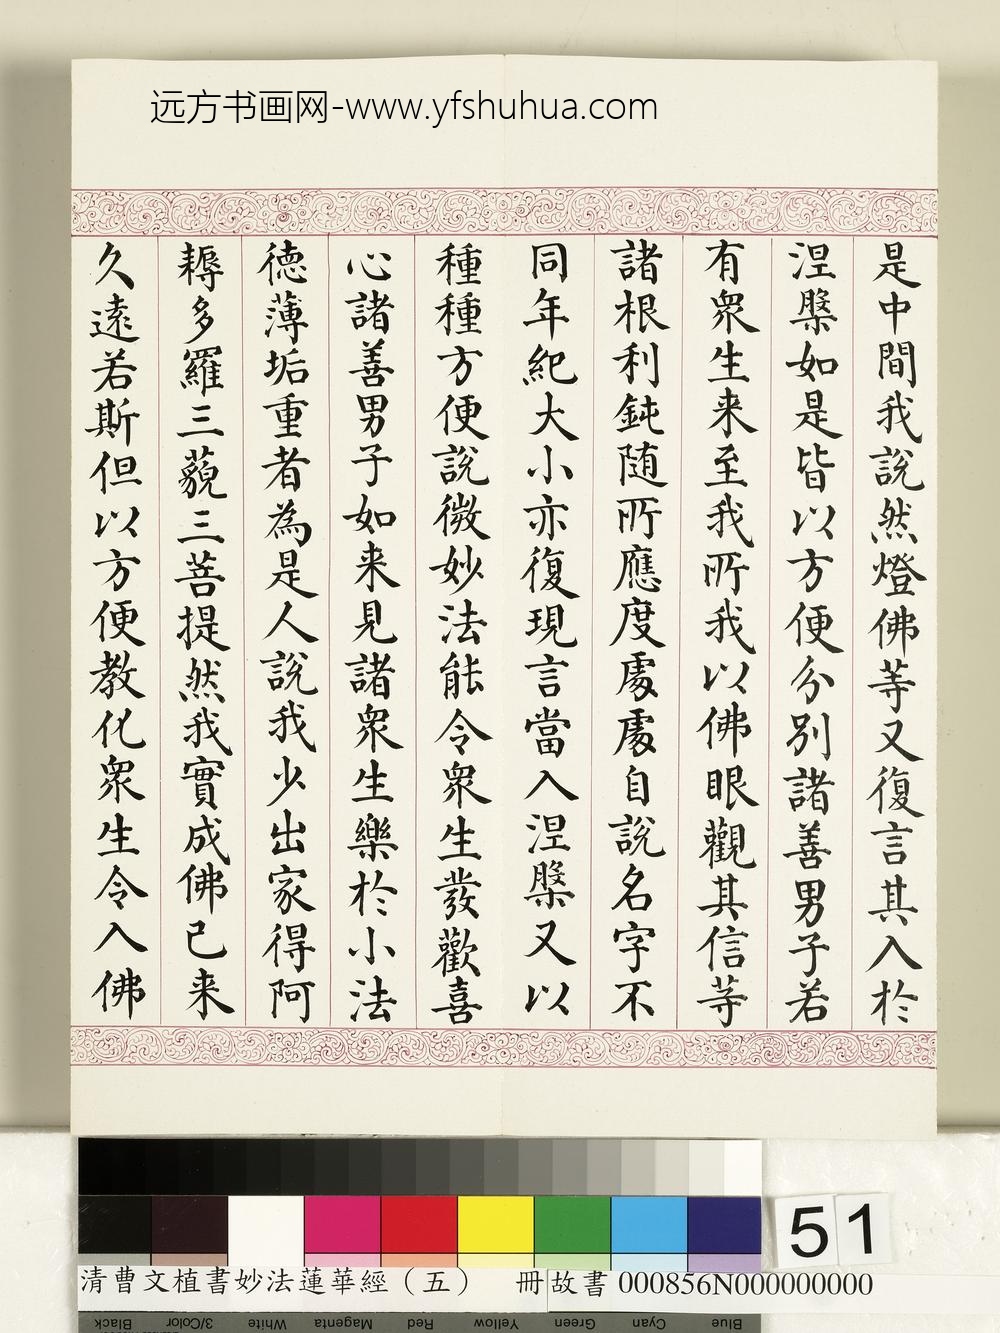 远方书画网-www.yfshuhua.com
是中間我說然燈佛等又復言其入於
涅槃如是皆以方便分別諸善男子若
有衆生来至我所我以佛眼觀其信等
諸根利鈍随所應度處處自說名字不
同年紀大小亦復現言當入涅槃又以
種種方便說微妙法能令衆生發歡喜
心諸善男子如来見諸衆生樂於小法
徳薄垢重者為是人說我少出家得阿
耨多羅三藐三菩提然我實成佛已来
久遠若斯但以方便教化衆生令入佛
51
清曹文植書妙法蓮華經（五） 冊故書000856N000000000
Black 3/Color White Magenta Red Yellow Green Cyan Blue